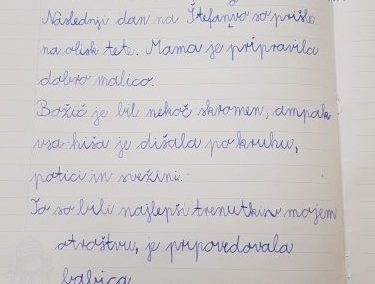 Naslednji dan na Štefanvo so prišle
na obisk tete. Mama je pripravila
dobro malico.
Božič je bil nekoč skromen, ampak
vsa hiša je dišala po kruhu,
potici in svežini.
To so bili najlepši trenutki v mojem
otroštvu, je pripovedovala
babica